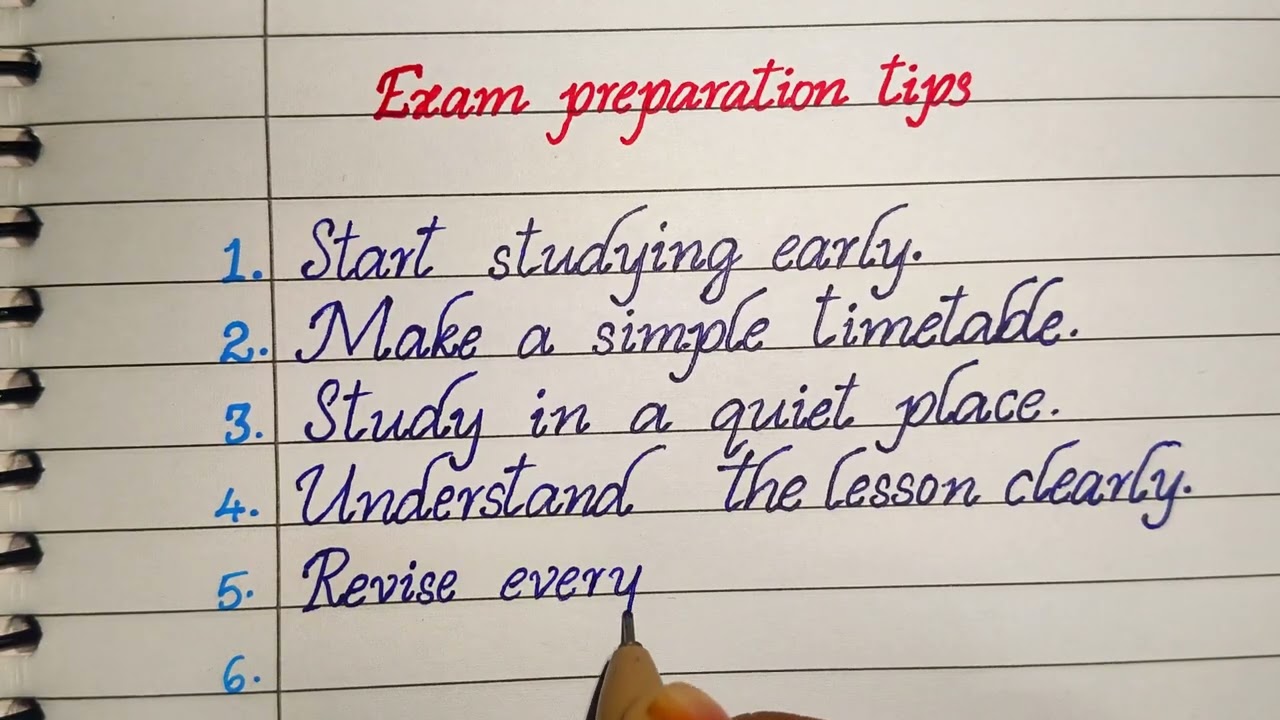 Exam preparation tips
1. Start studying early.
2. Make a simple timetable.
3. Study in a quiet place.
4. Understand the lesson clearly.
5. Revise every
6.